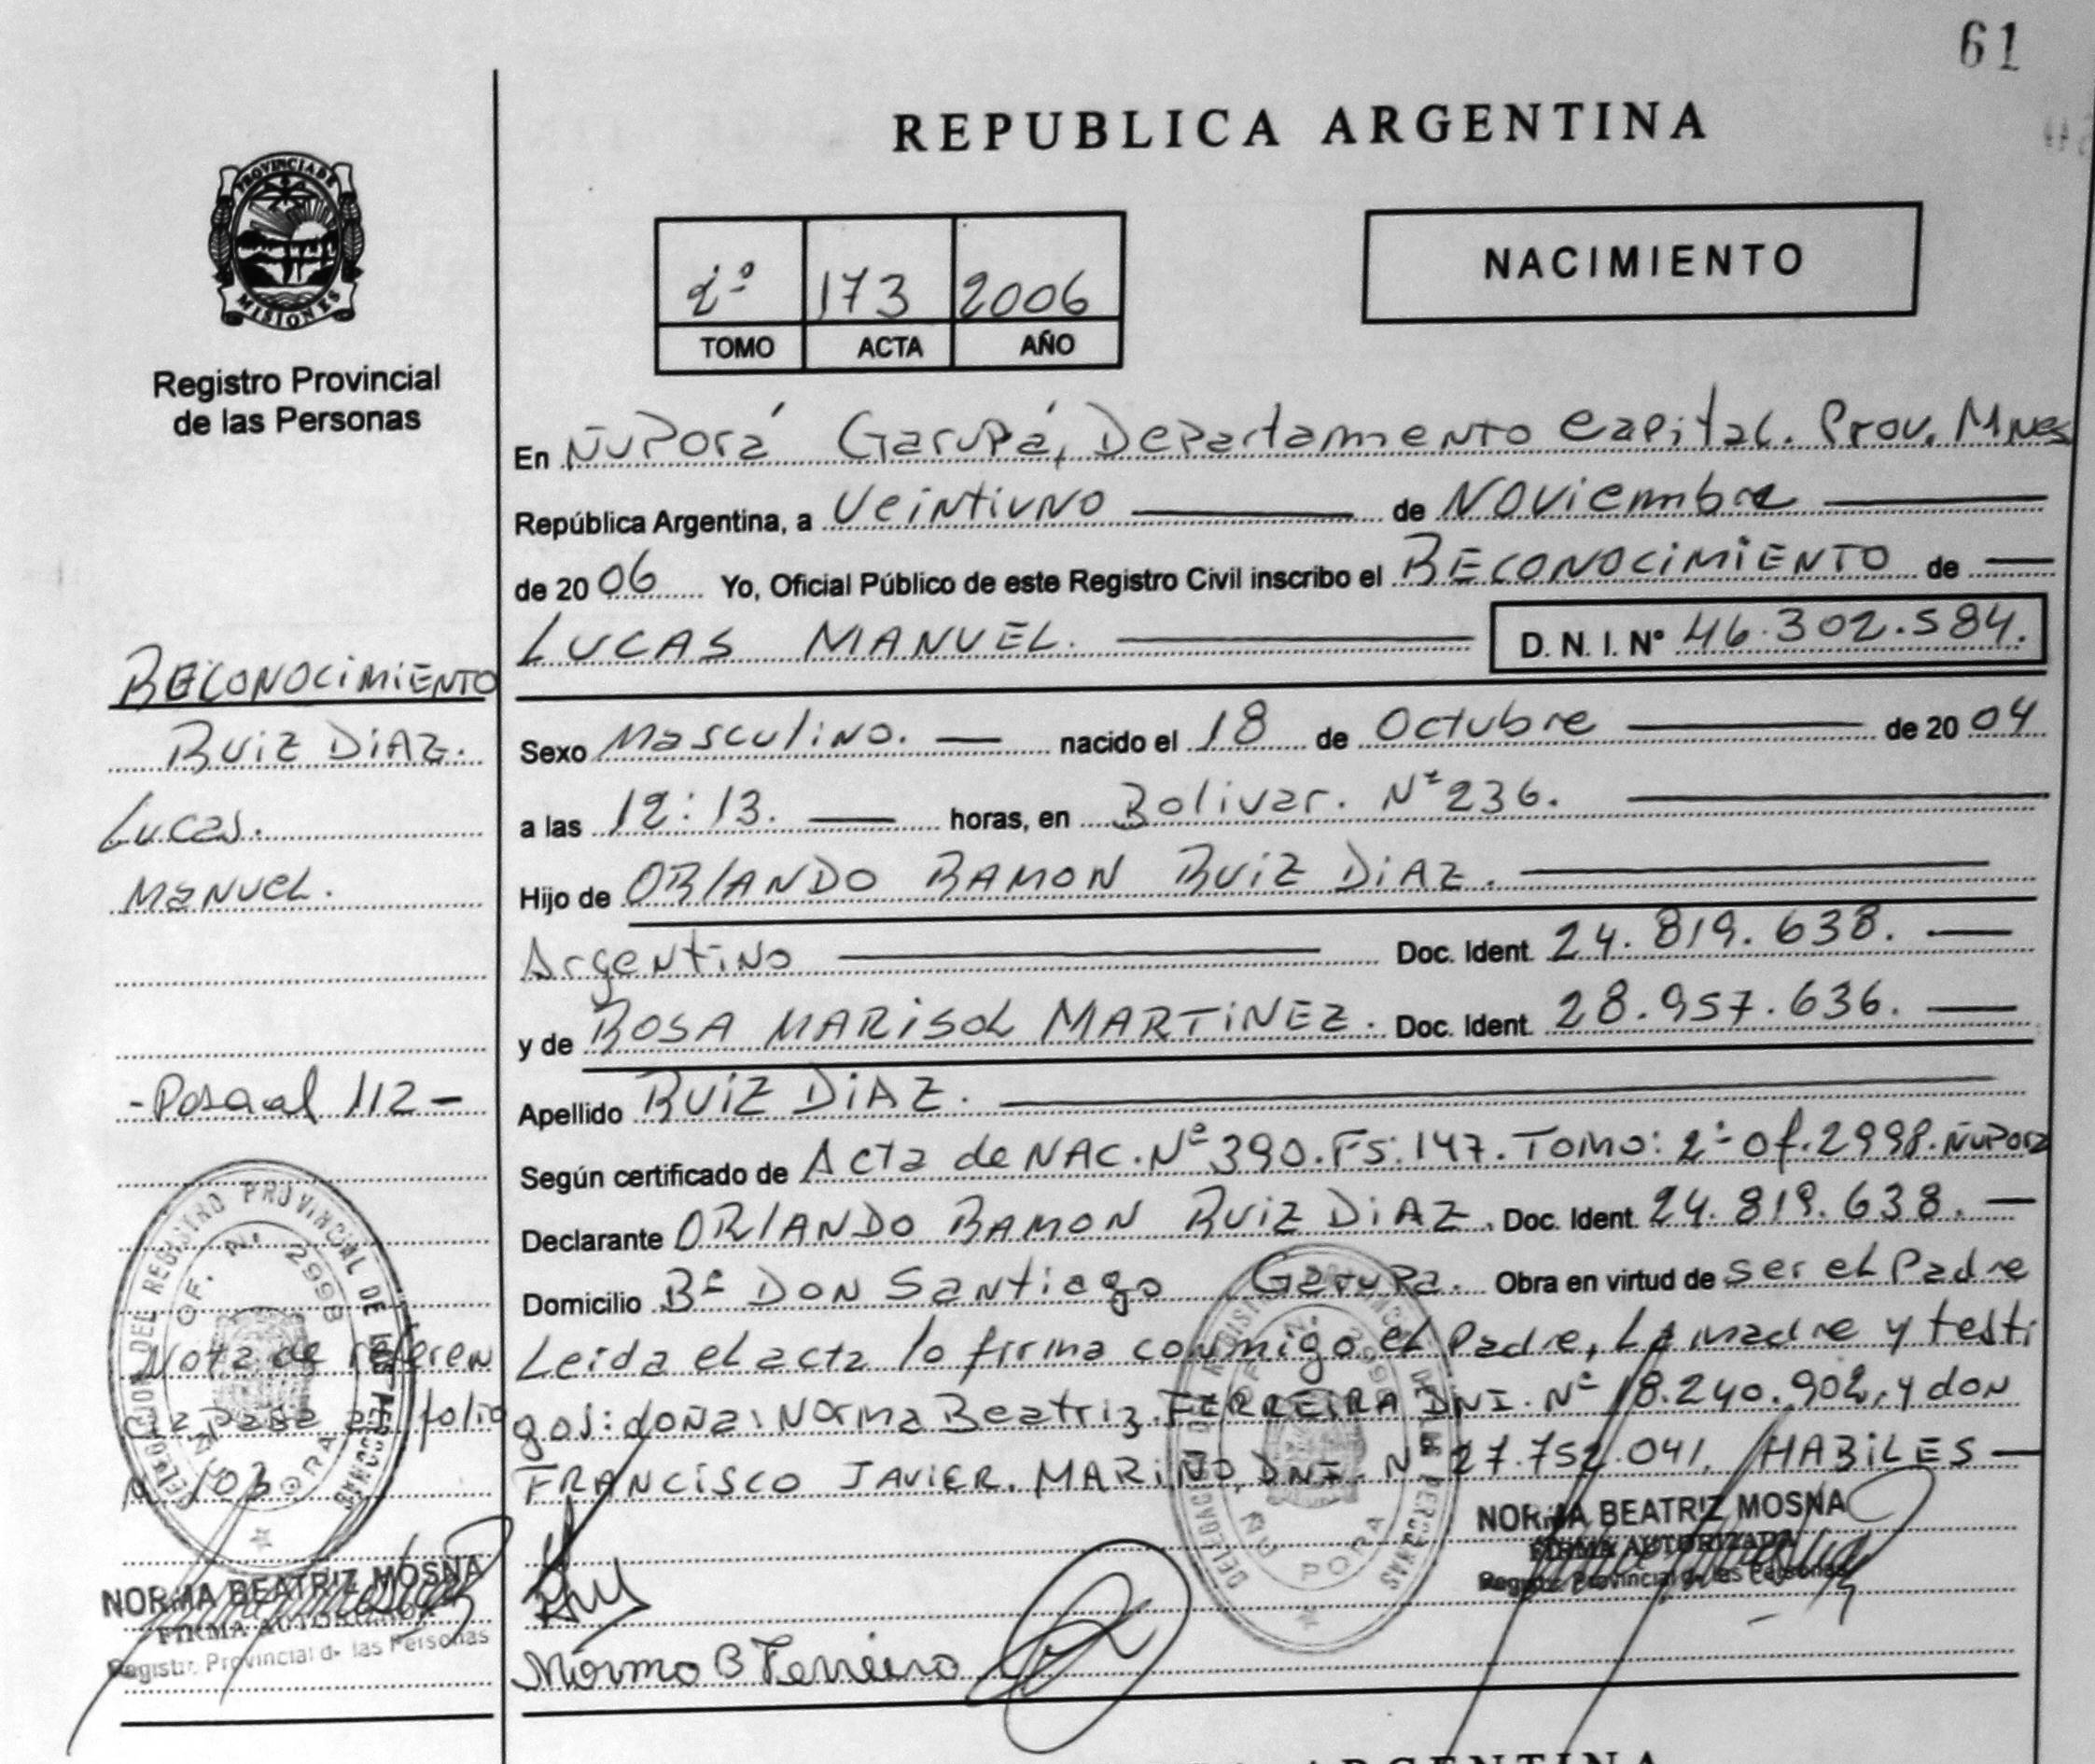 61
REPUBLICA ARGENTINA
PROVINCIA DE
MISIONES
Registro Provincial
de las Personas
2º 173 2006
TOMO ACTA AÑO
NACIMIENTO
En ÑuPorá Garupá, Departamento Capital. Prov. Mnes
República Argentina, a Veintiuno de Noviembre
de 20 06 Yo, Oficial Público de este Registro Civil inscribo el RECONOCIMIENTO de
LUCAS MANUEL. D. N. I. Nº 46.302.584.
Sexo Masculino. nacido el 18 de Octubre de 20 04
a las 12:13. horas, en Bolivar. Nº 236.
Hijo de ORLANDO RAMON RUIZ DIAZ.
Argentino Doc. Ident. 24.819.638.
y de ROSA MARISOL MARTINEZ. Doc. Ident. 28.957.636.
Apellido RUIZ DIAZ.
Según certificado de Acta de NAC. Nº 390. Fs: 147. Tomo: 2º of. 2998. ÑuPorá
Declarante ORLANDO RAMON RUIZ DIAZ. Doc. Ident. 24.819.638.
Domicilio Bº DON Santiago Garupa. Obra en virtud de ser el Padre
Leida el acta lo firma conmigo el Padre, La madre y testi
gos: doña: Norma Beatriz FERREIRA DNI. Nº 18.240.902, y don
FRANCISCO JAVIER. MARIÑO, DNI. Nº 27.752.041, HABILES
RECONOCIMIENTO
RUIZ DIAZ.
Lucas.
Manuel.
- Pasa al 112 -
Nota de referen
cia Pasa al folio
Nº 103
DELEGACION DEL REGISTRO PROVINCIAL DE LAS PERSONAS
OF. N. 2998
ÑU PORA
NORMA BEATRIZ MOSNA
FIRMA AUTORIZADA
Registro Provincial de las Personas
DELEGACION DEL REGISTRO PROVINCIAL DE LAS PERSONAS
OF. N. 2998
ÑU PORA
NORMA BEATRIZ MOSNA
FIRMA AUTORIZADA
Registro Provincial de las Personas
Norma B Ferreira
ARGENTINA